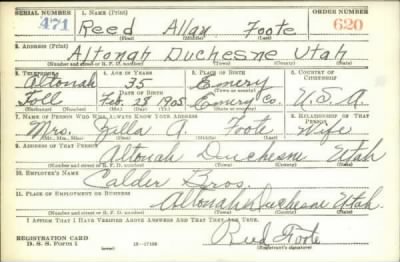 SERIAL NUMBER 1. NAME (Print) ORDER NUMBER
471 Reed Allan Foote 620
(First) (Middle) (Last)
2. ADDRESS (Print)
Altonah Duchesne Utah
(Number and street or R. F. D. number) (Town) (County) (State)
3. TELEPHONE 4. AGE IN YEARS 5. PLACE OF BIRTH 6. COUNTRY OF CITIZENSHIP
Altonah 35 Emery
DATE OF BIRTH
Toll Feb. 28 1905 Emery Co. U.S.A.
(Exchange) (Number) (Mo.) (Day) (Yr.) (State or country)
7. NAME OF PERSON WHO WILL ALWAYS KNOW YOUR ADDRESS 8. RELATIONSHIP OF THAT PERSON
Mrs. Zilla A. Foote Wife
(Mr., Mrs., Miss) (First) (Middle) (Last)
9. ADDRESS OF THAT PERSON
Altonah Duchesne Utah
(Number and street or R. F. D. number) (Town) (County) (State)
10. EMPLOYER'S NAME
Calder Bros.
11. PLACE OF EMPLOYMENT OR BUSINESS
Altonah Duchesne Utah.
(Number and street or R. F. D. number) (Town) (County) (State)
I AFFIRM THAT I HAVE VERIFIED ABOVE ANSWERS AND THAT THEY ARE TRUE.
REGISTRATION CARD
D. S. S. Form 1 Reed Foote
(Registrant's signature)